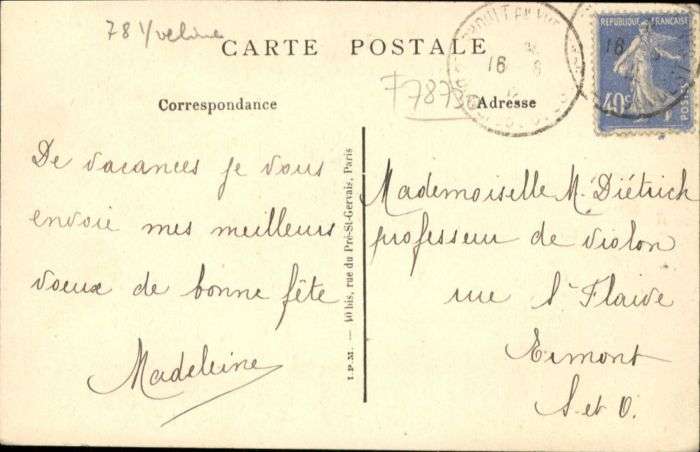 78 Yveline
CARTE POSTALE
REPUBLIQUE FRANÇAISE
40c
POSTES
16
16
F 7875
Correspondance
Adresse
De vacances je vous
envoie mes meilleurs
voeux de bonne fête
Madeleine
I.P.M. — 40 bis, rue du Pré-St-Gervais, Paris
Mademoiselle M. Diétrich
professeur de violon
rue St Flaive
Ermont
S. et O.